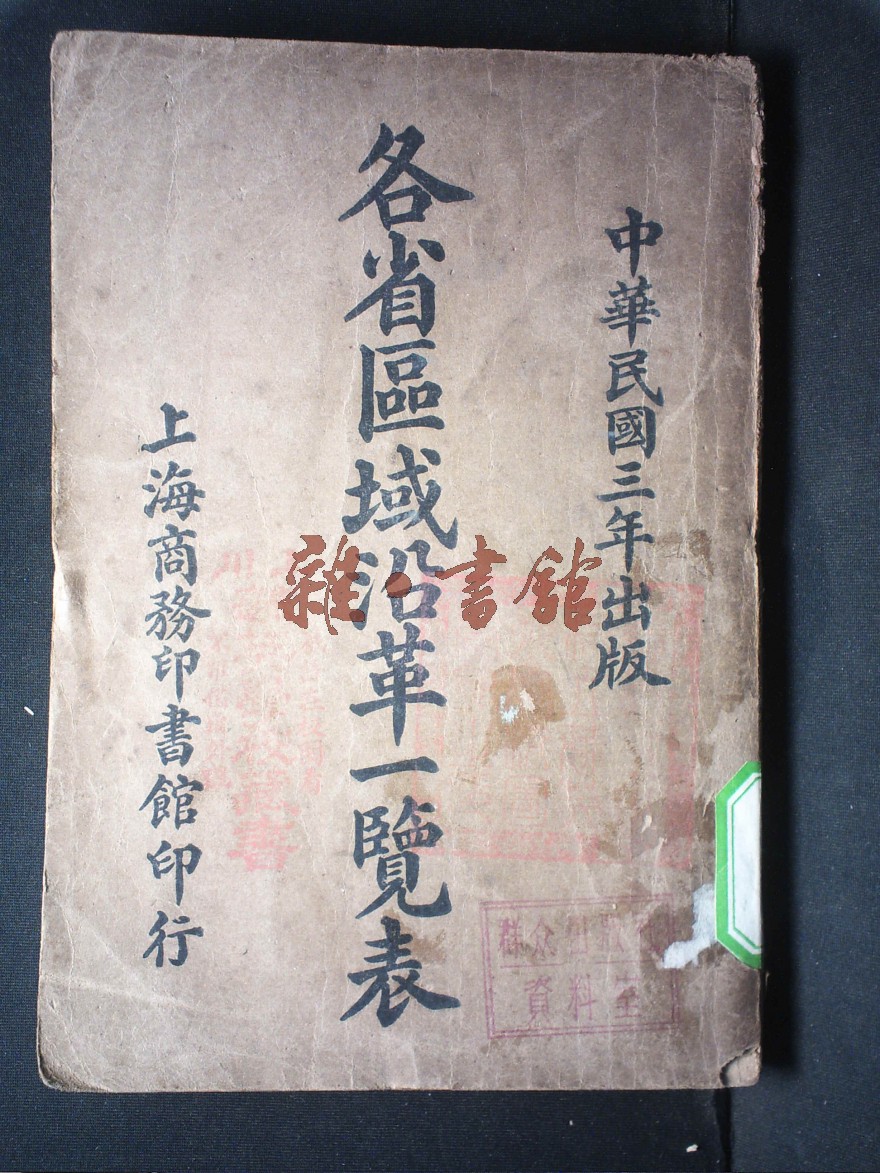 中華民國三年出版
各省區域沿革一覽表
上海商務印書館印行
雜·書館
群众出版
資料室